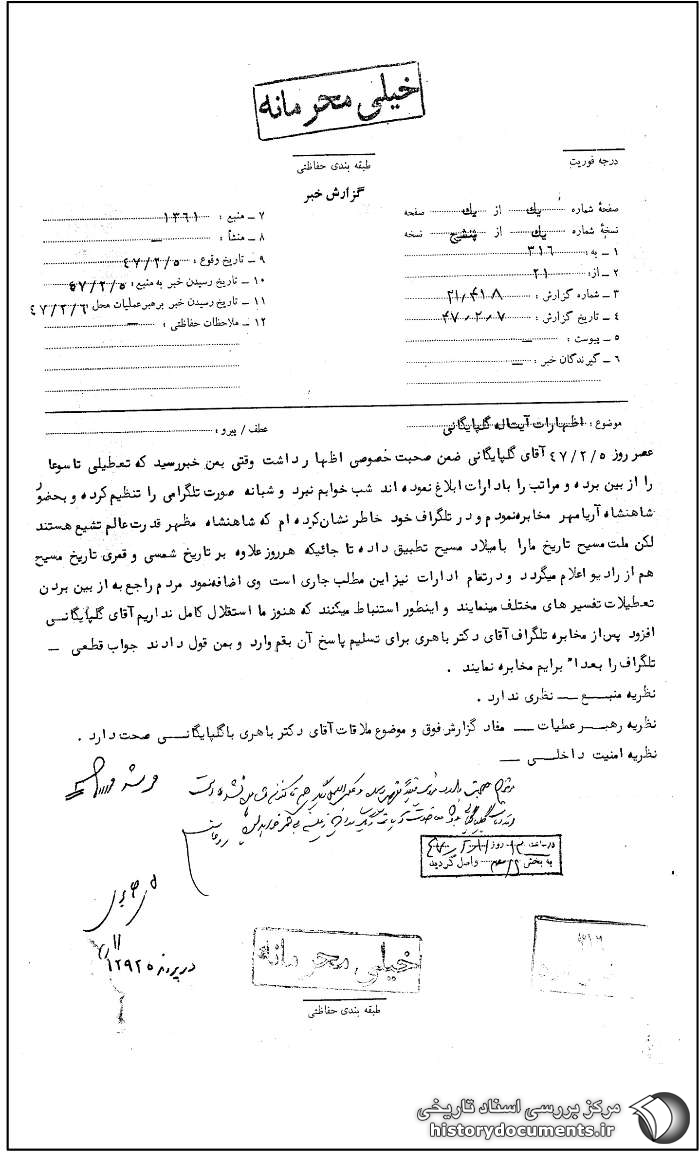 خیلی محرمانه
درجه فوریت
طبقه بندی حفاظتی
گزارش خبر
صفحهٔ شماره یک از یک صفحه
نسخهٔ شماره یک از پنج نسخه
۱ ـ به : ۳۱۶
۲ ـ از: ۲۱
۳ ـ شماره گزارش : ۲۱٫۴۱۸
۴ ـ تاریخ گزارش : ۴۷٫۲٫۷
۵ ـ پیوست : ـ
۶ ـ گیرندگان خبر : ـ
۷ ـ منبع : ۱۳۶۱
۸ ـ منشأ : ـ
۹ ـ تاریخ وقوع : ۴۷/۲/۵
۱۰ ـ تاریخ رسیدن خبر به منبع : ۴۷/۲/۵
۱۱ ـ تاریخ رسیدن خبر برهبر عملیات محل : ۴۷/۲/۶
۱۲ ـ ملاحظات حفاظتی : ـ
موضوع : اظهارات آیت‌اله گلپایگانی
عطف / پیرو :
عصر روز ۴۷/۲/۵ آقای گلپایگانی ضمن صحبت خصوصی اظهار داشت وقتی بمن خبر رسید که تعطیلی تاسوعا
را از بین برده و مراتب را بادارات ابلاغ نموده اند شب خوابم نبرد و شبانه صورت تلگرامی را تنظیم کرده و بحضور
شاهنشاه آریامهر مخابره نمودم و در تلگراف خود خاطر نشان کرده ام که شاهنشاه مظهر قدرت عالم تشیع هستند
لکن ملت مسیح تاریخ ما را با میلاد مسیح تطبیق داده تا جائیکه هر روز علاوه بر تاریخ شمسی و قمری تاریخ مسیح
هم از رادیو اعلام میگردد و در تمام ادارات نیز این مطلب جاری است وی اضافه نمود مردم راجع به از بین بردن
تعطیلات تفسیر های مختلف مینمایند و اینطور استنباط میکنند که هنوز ما استقلال کامل نداریم آقای گلپایگانی
افزود پس از مخابره تلگراف آقای دکتر باهری برای تسلیم پاسخ آن بقم وارد و بمن قول دادند جواب قطعی ـ
تلگراف را بعدا" برایم مخابره نمایند .
نظریه منبع ـ نظری ندارد .
نظریه رهبر عملیات ـ مفاد گزارش فوق و موضوع ملاقات آقای دکتر باهری با گلپایگانی صحت دارد .
نظریه امنیت داخلی ـ
واصل گردید
در پرونده ۱۲۹۲۵
۳۱۶
خیلی محرمانه
طبقه بندی حفاظتی
مرکز بررسی اسناد تاریخی
historydocuments.ir